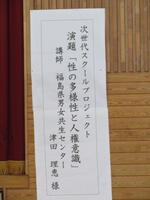 次世代スクールプロジェクト
演題「性の多様性と人権意識」
講師 福島県男女共生センター
津田 理恵 様